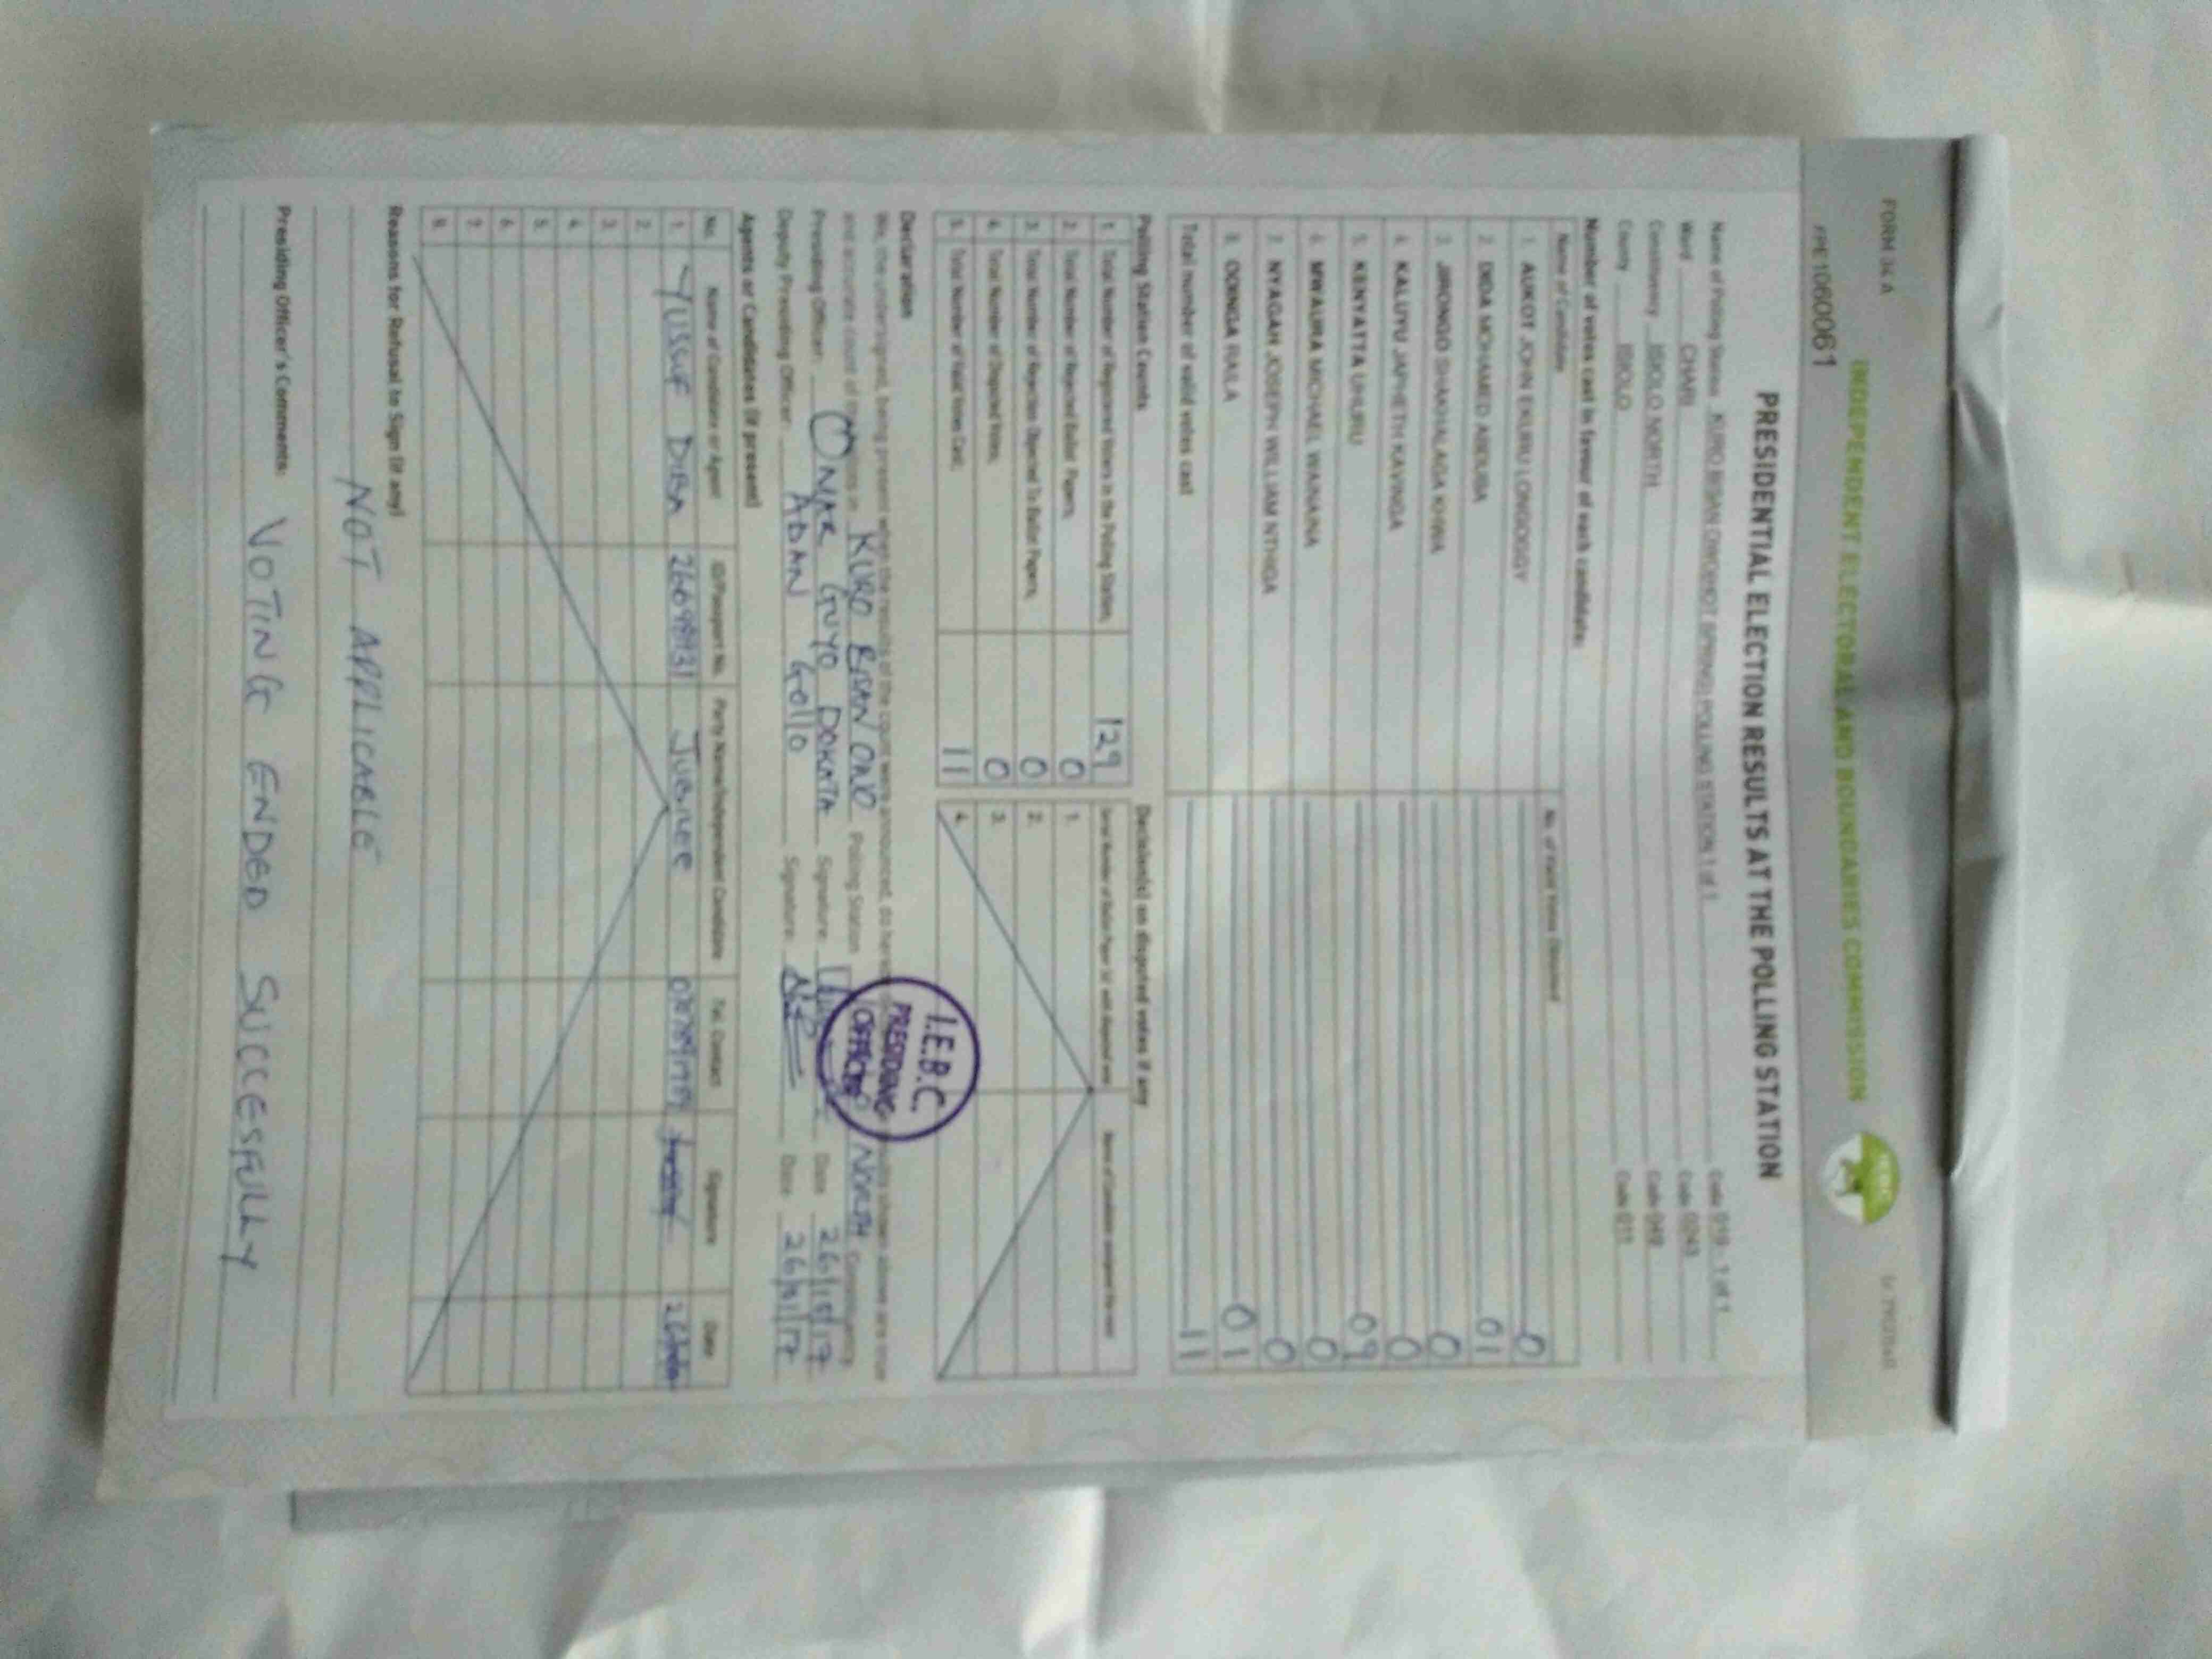 FORM 34 A
INDEPENDENT ELECTORAL AND BOUNDARIES COMMISSION
IEBC
PRE1060061
PRESIDENTIAL ELECTION RESULTS AT THE POLLING STATION
Name of Polling Station KURO BISAN OWO(HOT SPRING) POLLING STATION 1 of 1 Code 019 - 1 of 1
Ward CHARI Code 0243
Constituency ISIOLO NORTH Code 049
County ISIOLO Code 011
Number of votes cast in favour of each candidate:
Name of Candidate No. of Valid Votes Obtained
1. AUKOT JOHN EKURU LONGOGGY 0
2. DIDA MOHAMED ABDUBA 01
3. JIRONGO SHAKHALAGA KHWA 0
4. KALUYU JAPHETH KAVINGA 0
5. KENYATTA UHURU 09
6. MWAURA MICHAEL WAINAINA 0
7. NYAGAH JOSEPH WILLIAM NTHIGA 0
8. ODINGA RAILA 01
Total number of valid votes cast 11
Polling Station Counts Decision(s) on disputed votes if any
1. Total Number of Registered Voters in the Polling Station; 129
2. Total Number of Rejected Ballot Papers; 0 1.
3. Total Number of Rejection Objected To Ballot Papers; 0 2.
4. Total Number of Disputed Votes; 0 3.
5. Total Number of Valid Votes Cast; 11 4.
Declaration
We, the undersigned, being present when the results of the count were announced, do hereby shown above are true
and accurate count of the KURO BISAN OWO Polling Station NORTH Constituency
Presiding Officer: OMAR GUYO DOKATA Signature: Date 26/10/17
Deputy Presiding Officer: ADAN Gollo Signature: Date 26/10/17
I.E.B.C.
PRESIDING
OFFICER
Agents or Candidates (if present)
No. Name of Candidate or Agent ID/Passport No. Party Name/Independent Candidate Tel. Contact Signature Date
1. YUSSUF DIBA Jubilee
2.
3.
4.
5.
6.
7.
8.
Reasons for Refusal to Sign (if any)
NOT APPLICABLE
Presiding Officer's Comments: VOTING ENDED SUCCESSFULLY